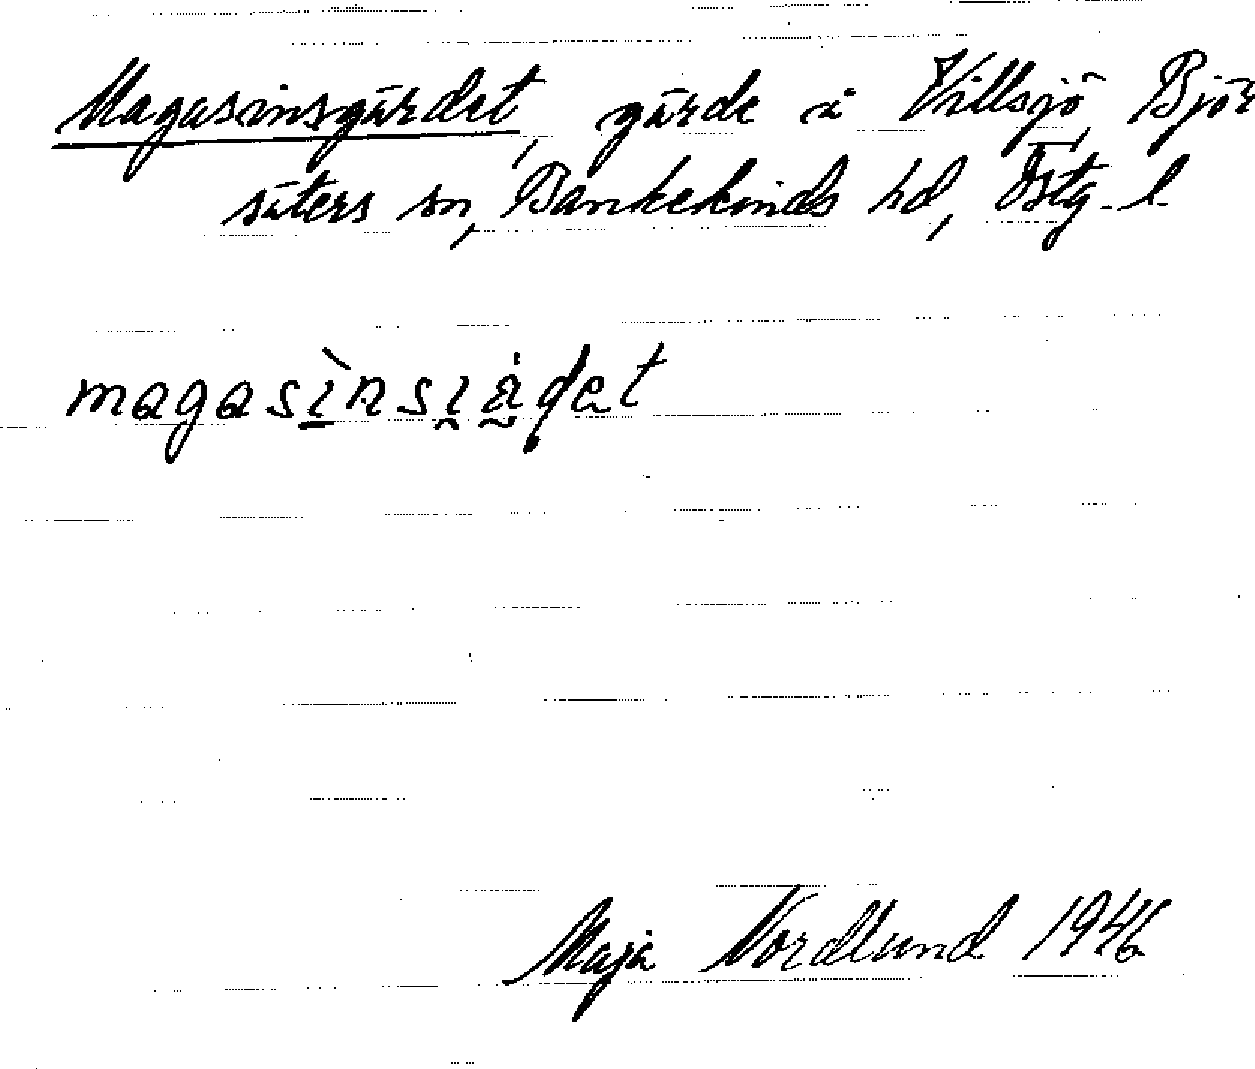 Magasinsgärdet, gärde å Villsjö, Björ
säters sn, Bankekinds hd, Östg. l.
magasì̱nsi̭å̰ḍet
Maja Nordlund 1946